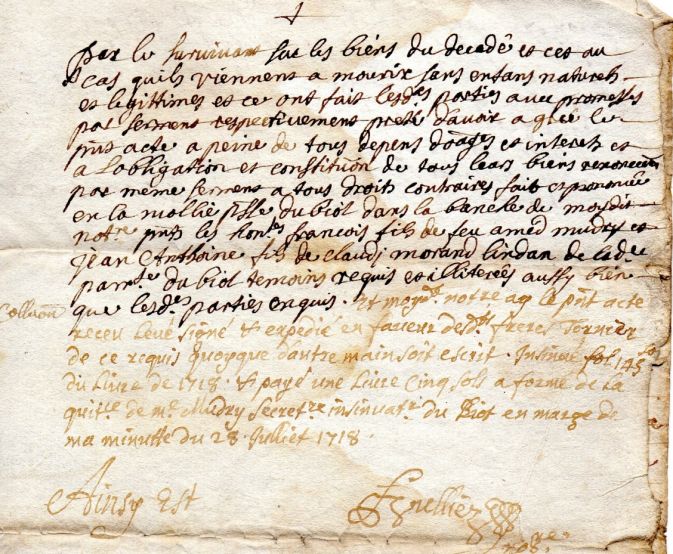 par le survivant sur les biens du decedé et ces au
cas quils viennent a mourir sans enfans naturels
et legittimes et ce ont fait lesdes parties avec promesses
par serment respectivement preté davoir a gree le
pnt acte a peine de tous depens doages et interets et
a Lobligation et constituon de tous leurs biens
par même serment a tous droits contraires fait et prononcé
en la mollie psse du biol dans la banche de moydit
notre pnts les hontes francois fils de feu amed mudry et
jean Anthoine fils de claudj morand de lade
parrse du biol temoins requis et illiterés aussy bien
que lesdes parties enquis. Et moydt notre ag le pnt acte
receu Levé signé & expedié en faveur desdts freres Tornier
de ce requis quoyque dautre main soit escrit. Insinué fol 145
du Livre de 1718. & payé une Livre Cinq sols a forme de La
quitce de mr Mudry Secretre insinuatr du Biot en marge de
ma minutte du 28 Julliet 1718.
Ainsy Est